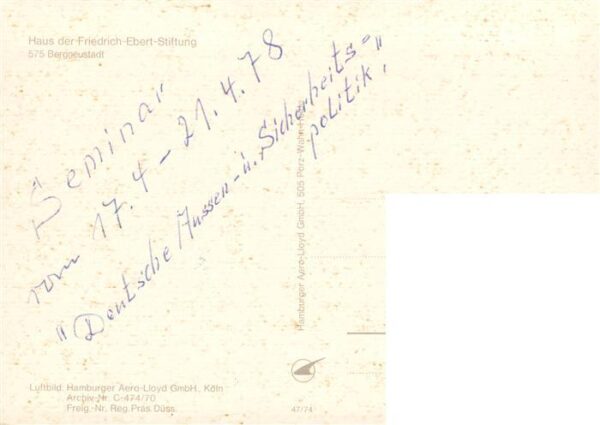 Haus der Friedrich-Ebert-Stiftung
575 Bergneustadt
Seminar
vom 17.4 - 21.4.78
"Deutsche Aussen- u. Sicherheits=
politik."
Hamburger Aero-Lloyd GmbH, 505 Porz-Wahn
Luftbild: Hamburger Aero-Lloyd GmbH., Köln
Archiv-Nr. C-474/70
Freig.-Nr. Reg.Präs Düss.
47/74